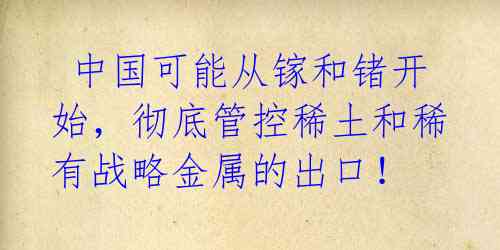 中国可能从镓和锗开
始，彻底管控稀土和稀
有战略金属的出口！